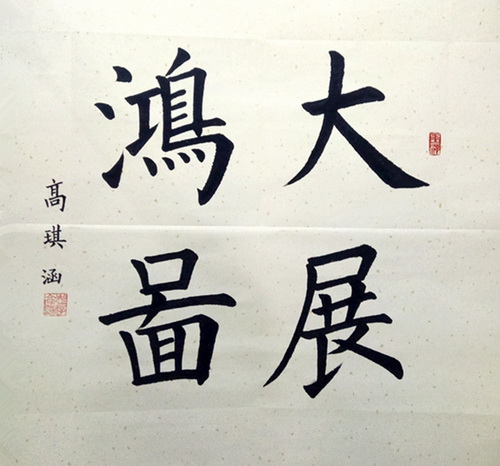 大展
鴻啚
高琪涵